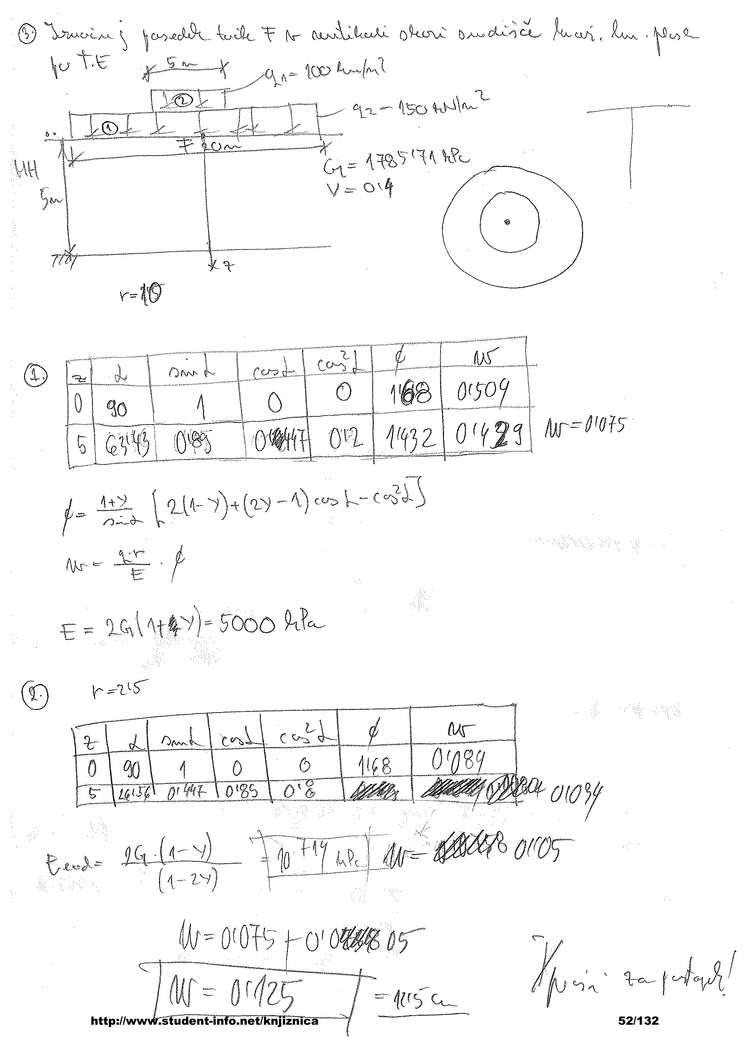 3. Izračunaj posedek točke F v vertikali skozi središče
po T.E
5m
q1 = 100 kN/m²
②
q2 = 150 kN/m²
①
F 20m
G = 1785'71 kPa
ν = 0'4
5m
z
r=10
1.
z α sinα cosα cos²α ϕ w
0 90 1 0 0 1'68 0'504
5 63'43 0'89 0'447 0'2 1'432 0'429 w = 0'075
ϕ = 1+ν / sinα [2(1-ν)+(2ν-1)cosα-cos²α]
w = q·r / E · ϕ
E = 2G(1+ν) = 5000 kPa
2. r=2'5
z α sinα cosα cos²α ϕ w
0 90 1 0 0 1'68 0'084
5 26'56 0'447 0'89 0'8 0'034
Eoed = 2G·(1-ν) / (1-2ν) = 10 714 kPa w = 0'05
w = 0'075 + 0'05
w = 0'125 = 12'5 cm
http://www.student-info.net/knjiznica 52/132